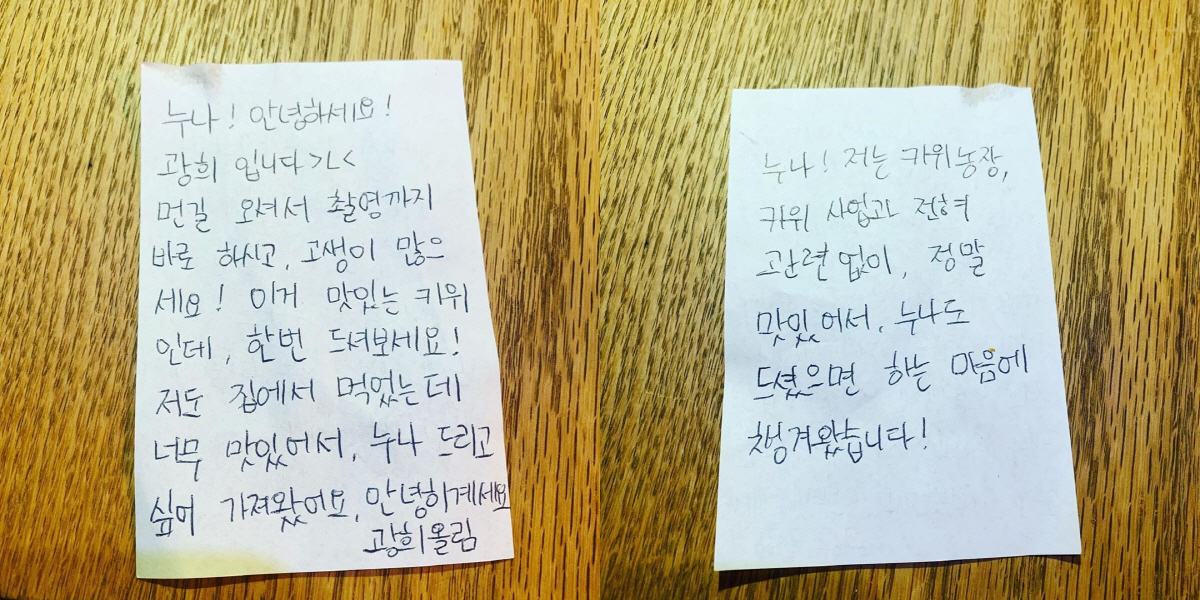 누나! 안녕하세요!
광희 입니다>ㅅ<
먼길 오셔서 촬영까지
바로 하시고, 고생이 많으
세요! 이거 맛있는 키위
인데, 한번 드셔보세요!
저도 집에서 먹었는데
너무 맛있어서, 누나 드리고
싶어 가져왔어요, 안녕히계세요
광희올림
누나! 저는 키위농장,
키위 사업과 전혀
관련없이, 정말
맛있어서, 누나도
드셨으면 하는 마음에
챙겨왔습니다!